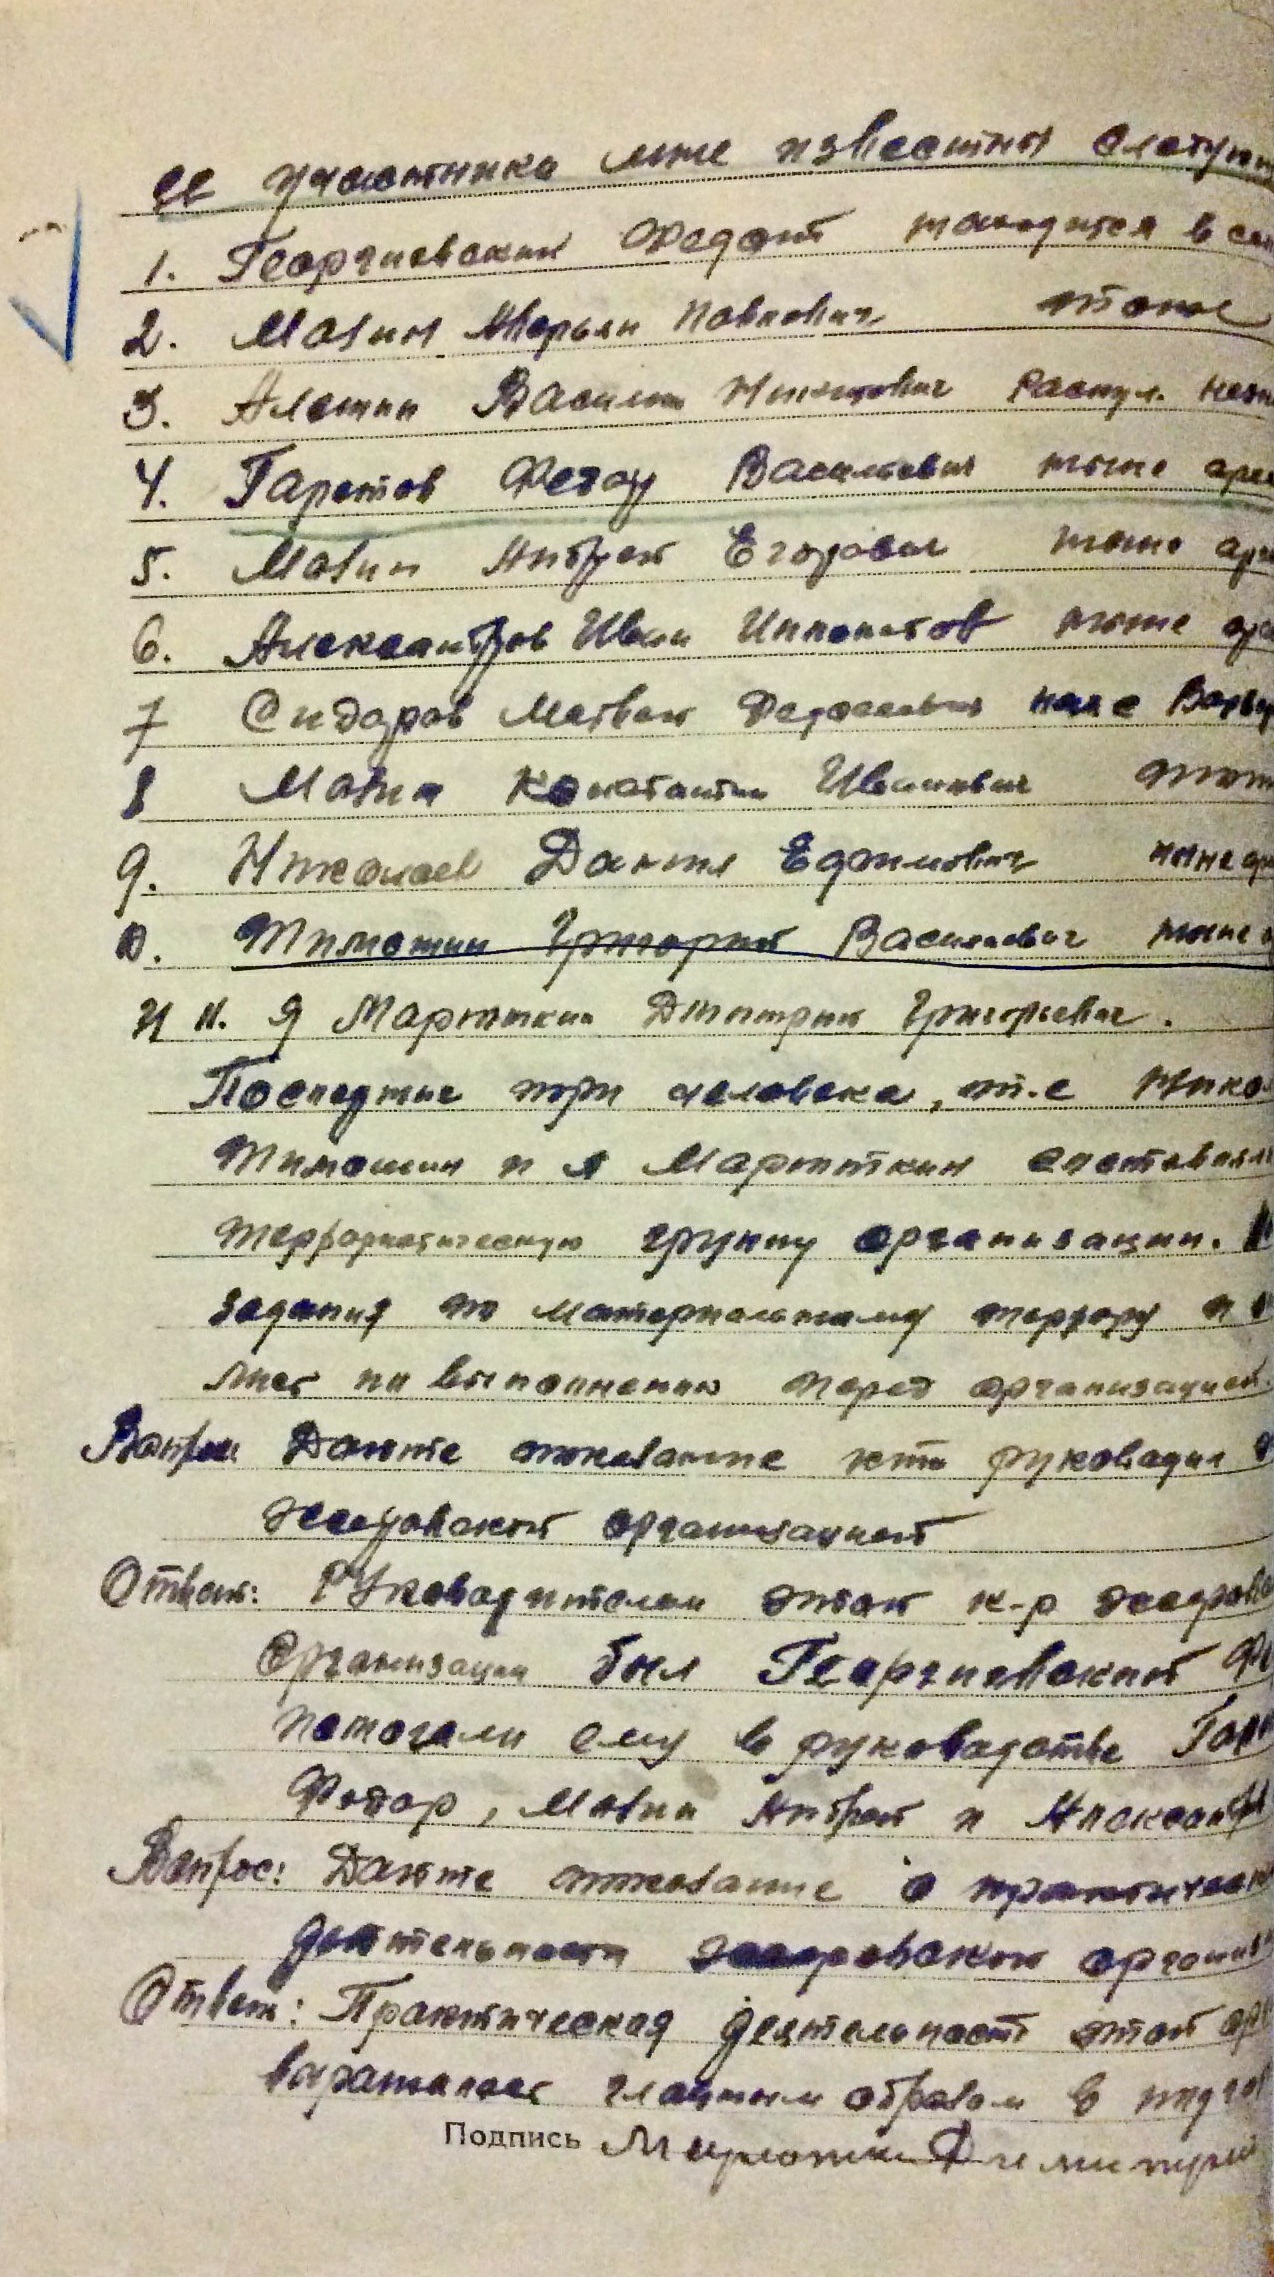 ее участника мне известны следую
1. Георгиевский Федот находится в
2. Мазин Аверьян Павлович тоже
3. Алешин Василий Никитович
4. Гаретов Федор Васильевич ныне аре
5. Мазин Андрей Егорович ныне аре
6. Александров Иван Ипполитов ныне аре
7 Сидоров Матвей
8 Мазин Константин Иванович
9. Николаев Данил Ефимович ныне
10. Тимошин Григорий Васильевич ныне
и 11. Я Марюткин Дмитрий Григорьевич.
Последние три человека, т.е Нико
Тимошин и я Марюткин
террористическую группу организации.
задания по материальному террору
по выполнению перед организацией.
Вопрос: Дайте показание кто руководил
эсеровской организацией
Ответ: Руководителем этой к-р эсеров
организации был Георгиевский Фе
помогали ему в руководстве Гаре
Федор, Мазин Андрей и Александр
Вопрос: Дайте показание о практическ
деятельности эсеровской организ
Ответ: Практическая деятельность этой орг
выражалась главным образом в подгот
Подпись Марюткин Димитрий